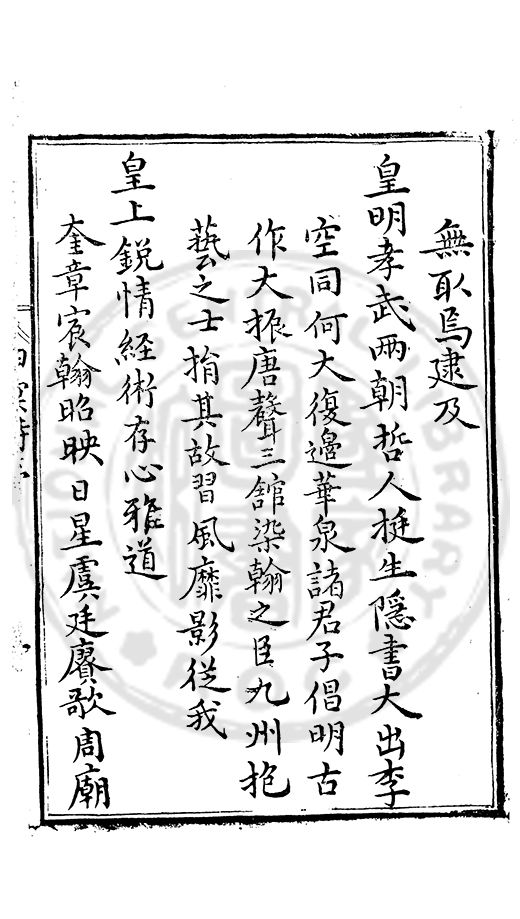 無取焉建及
皇明孝武兩朝哲人挺生隱書大出李
空同何大復邊華泉諸君子倡明古
作大振唐聲三舘染翰之臣九州抱
藝之士捐其故習風靡影從我
皇上鋭情経術存心雅道
奎章宸翰昭映日星虞廷賡歌周廟